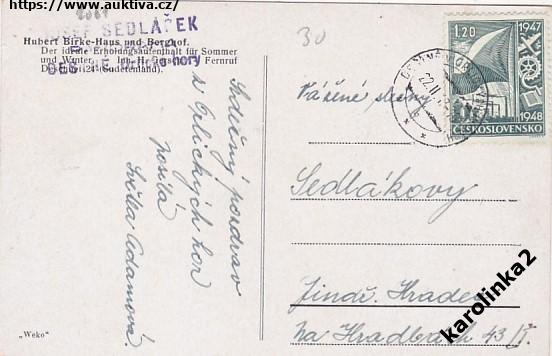 https://www.auktiva.cz/
JOSEF SEDLÁČEK
Hubert Birke-Haus und Berghof.
Der ideale Erholungsaufenthalt für Sommer
und Winter. Inh. H. Fernruf
(Sudetenland).
hory
30
1947
1.20
1948
ČESKOSLOVENSKO
22.II.
Srdečný pozdrav
z Orlických hor
posílá
Světla Adamová.
Vážené slečny
Sedlákovy
Jindř. Hradec
Na Hradbách 43/I.
„Weko“
karolinka2